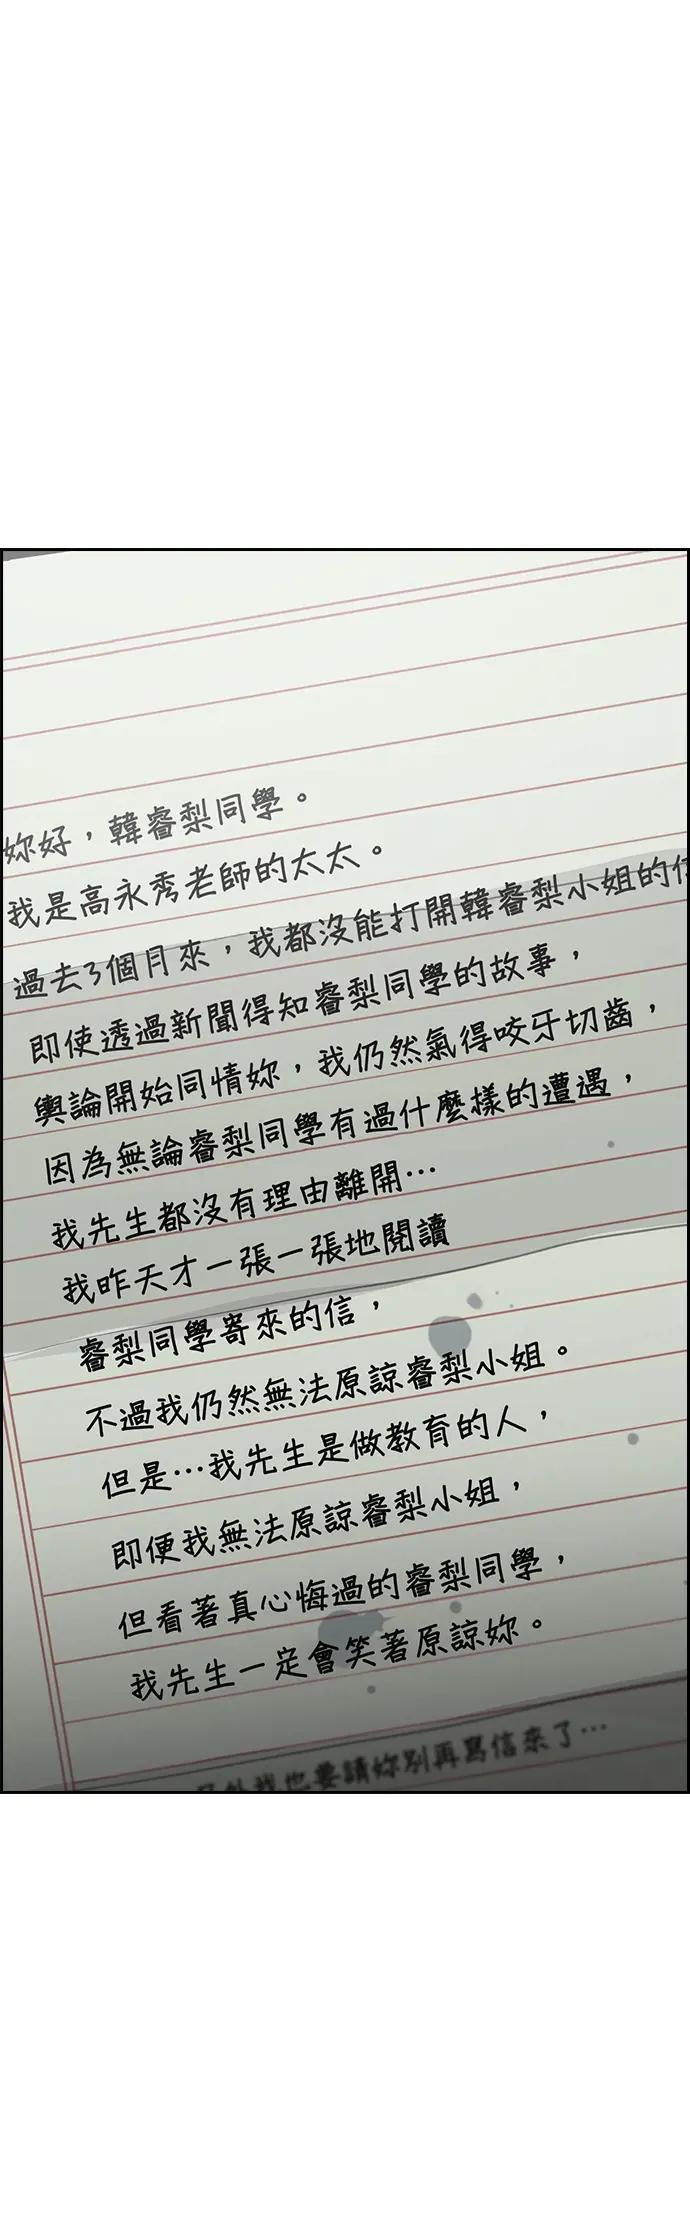 妳好，韓睿梨同學。
我是高永秀老師的太太。
過去3個月來，我都沒能打開韓睿梨小姐的
即使透過新聞得知睿梨同學的故事，
輿論開始同情妳，我仍然氣得咬牙切齒，
因為無論睿梨同學有過什麼樣的遭遇，
我先生都沒有理由離開…
我昨天才一張一張地閱讀
睿梨同學寄來的信，
不過我仍然無法原諒睿梨小姐。
但是…我先生是做教育的人，
即便我無法原諒睿梨小姐，
但看著真心悔過的睿梨同學，
我先生一定會笑著原諒妳。
我也要請妳別再寫信來了…